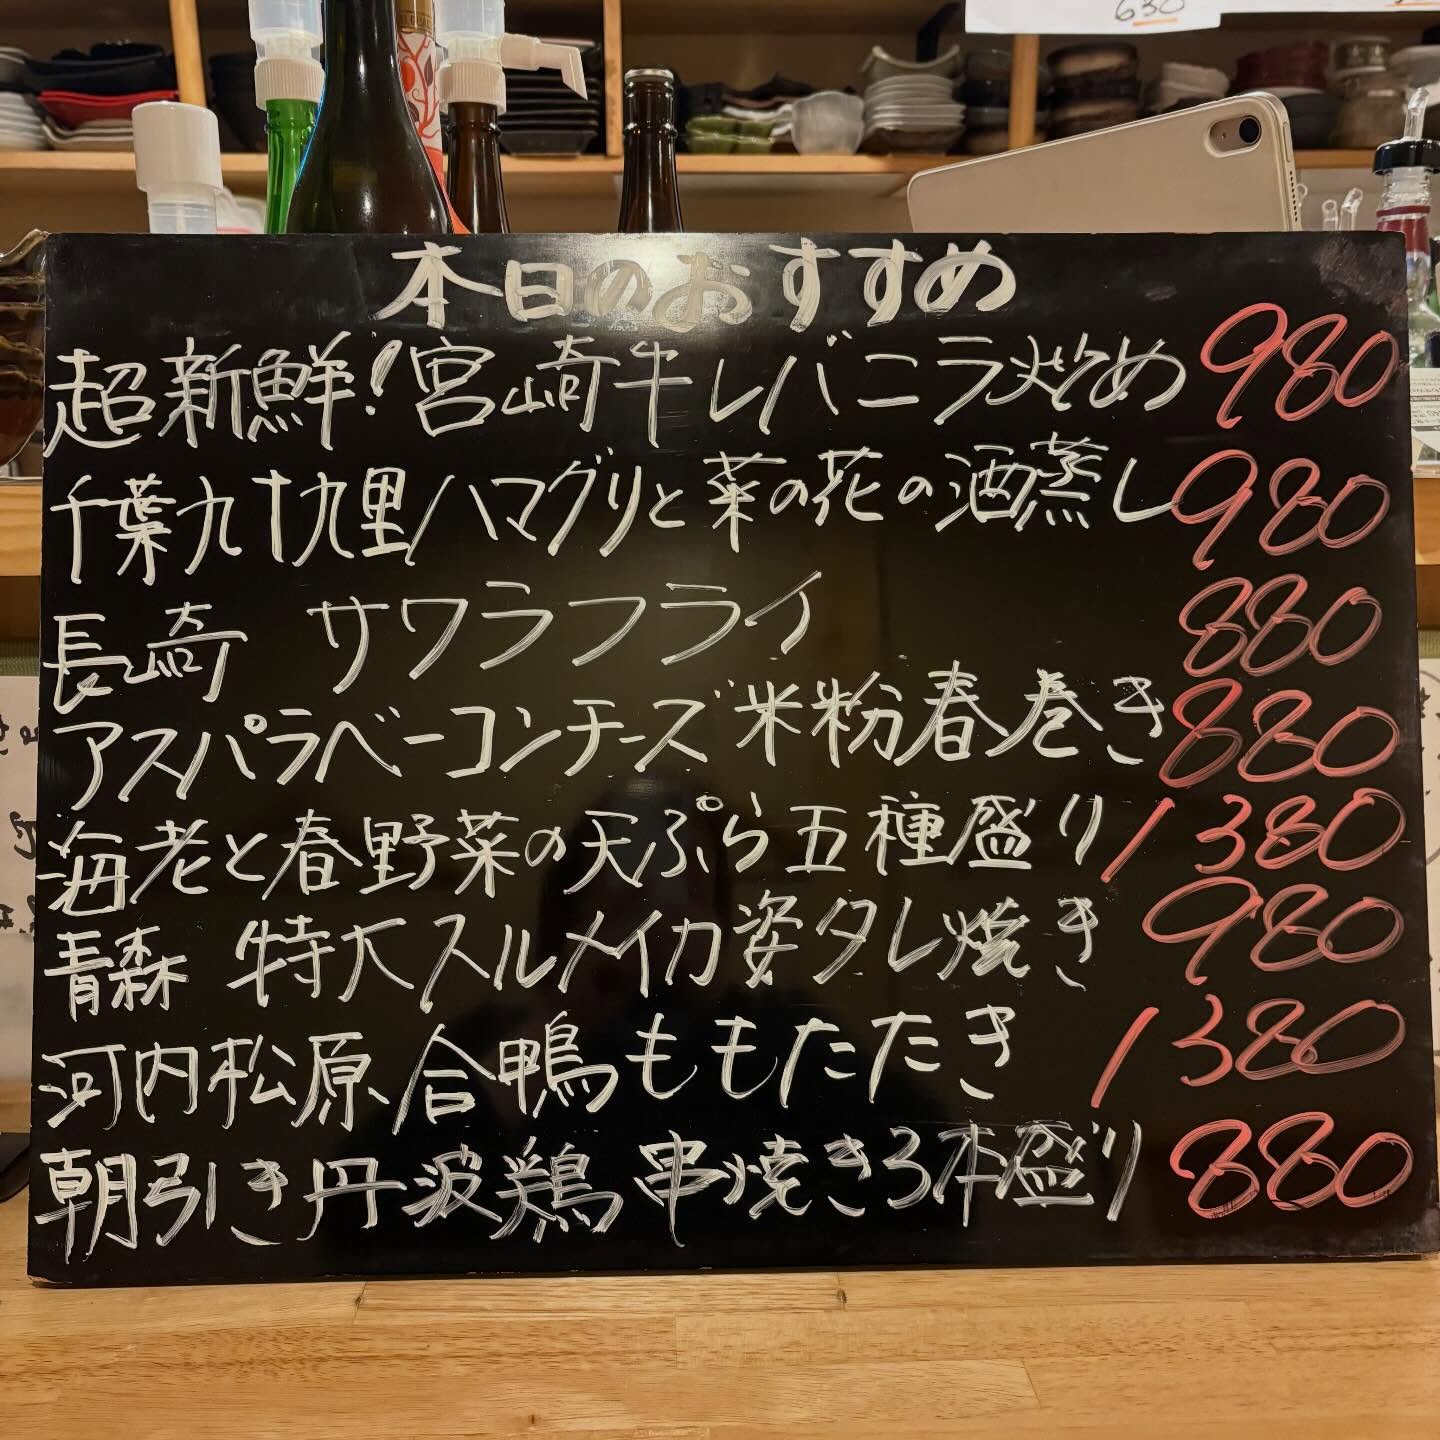 630
本日のおすすめ
超新鮮!宮崎牛レバニラ炒め 980
千葉九十九里ハマグリと菜の花の酒蒸し 980
長崎 サワラフライ 880
アスパラベーコンチーズ米粉春巻き 880
海老と春野菜の天ぷら五種盛り 1380
青森 特大スルメイカ姿タレ焼き 980
河内松原 合鴨ももたたき 1380
朝引き丹波鶏 串焼き3本盛り 880